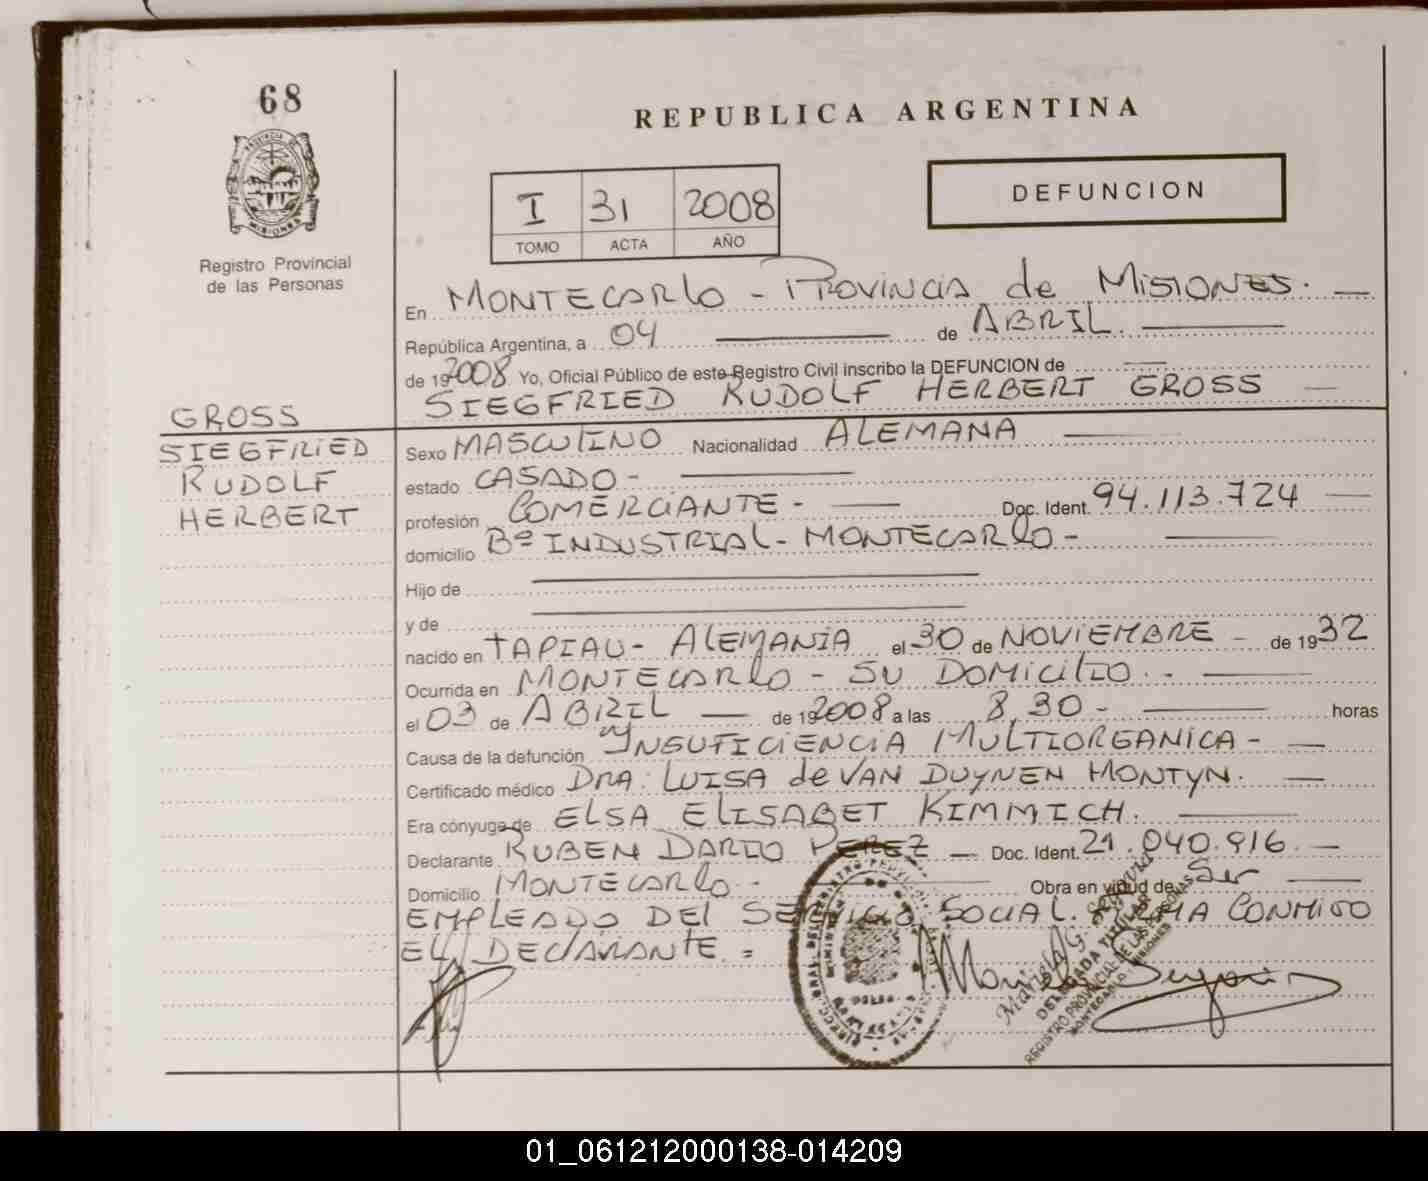 68
REPUBLICA ARGENTINA
PROVINCIA DE
MISIONES
Registro Provincial
de las Personas
I 31 2008
TOMO ACTA AÑO
DEFUNCION
En MONTECARLO - PROVINCIA de MISIONES.
República Argentina, a 04 de ABRIL.
de 192008 Yo, Oficial Público de este Registro Civil inscribo la DEFUNCION de
SIEGFRIED RUDOLF HERBERT GROSS
GROSS
SIEGFRIED
RUDOLF
HERBERT
Sexo MASCULINO Nacionalidad ALEMANA
estado CASADO -
profesión COMERCIANTE - Doc. Ident. 94.113.724
domicilio Bº INDUSTRIAL - MONTECARLO -
Hijo de
y de
nacido en TAPIAU - ALEMANIA el 30 de NOVIEMBRE - de 1932
Ocurrida en MONTECARLO - SU DOMICILIO. -
el 03 de ABRIL de 192008 a las 8,30 - horas
Causa de la defunción INSUFICIENCIA MULTIORGANICA -
Certificado médico DRA. LUISA de VAN DUYNEN MONTYN.
Era cónyuge de ELSA ELISABET KIMMICH.
Declarante RUBEN DARIO PEREZ Doc. Ident. 21.040.916.
Domicilio MONTECARLO - Obra en virtud de Ser
EMPLEADO DEL SERVICIO SOCIAL. FIRMA CONMIGO
EL DECLARANTE. =
DELEGADA TITULAR
REGISTRO PROVINCIAL DE LAS PERSONAS
MONTECARLO - MISIONES
01_061212000138-014209